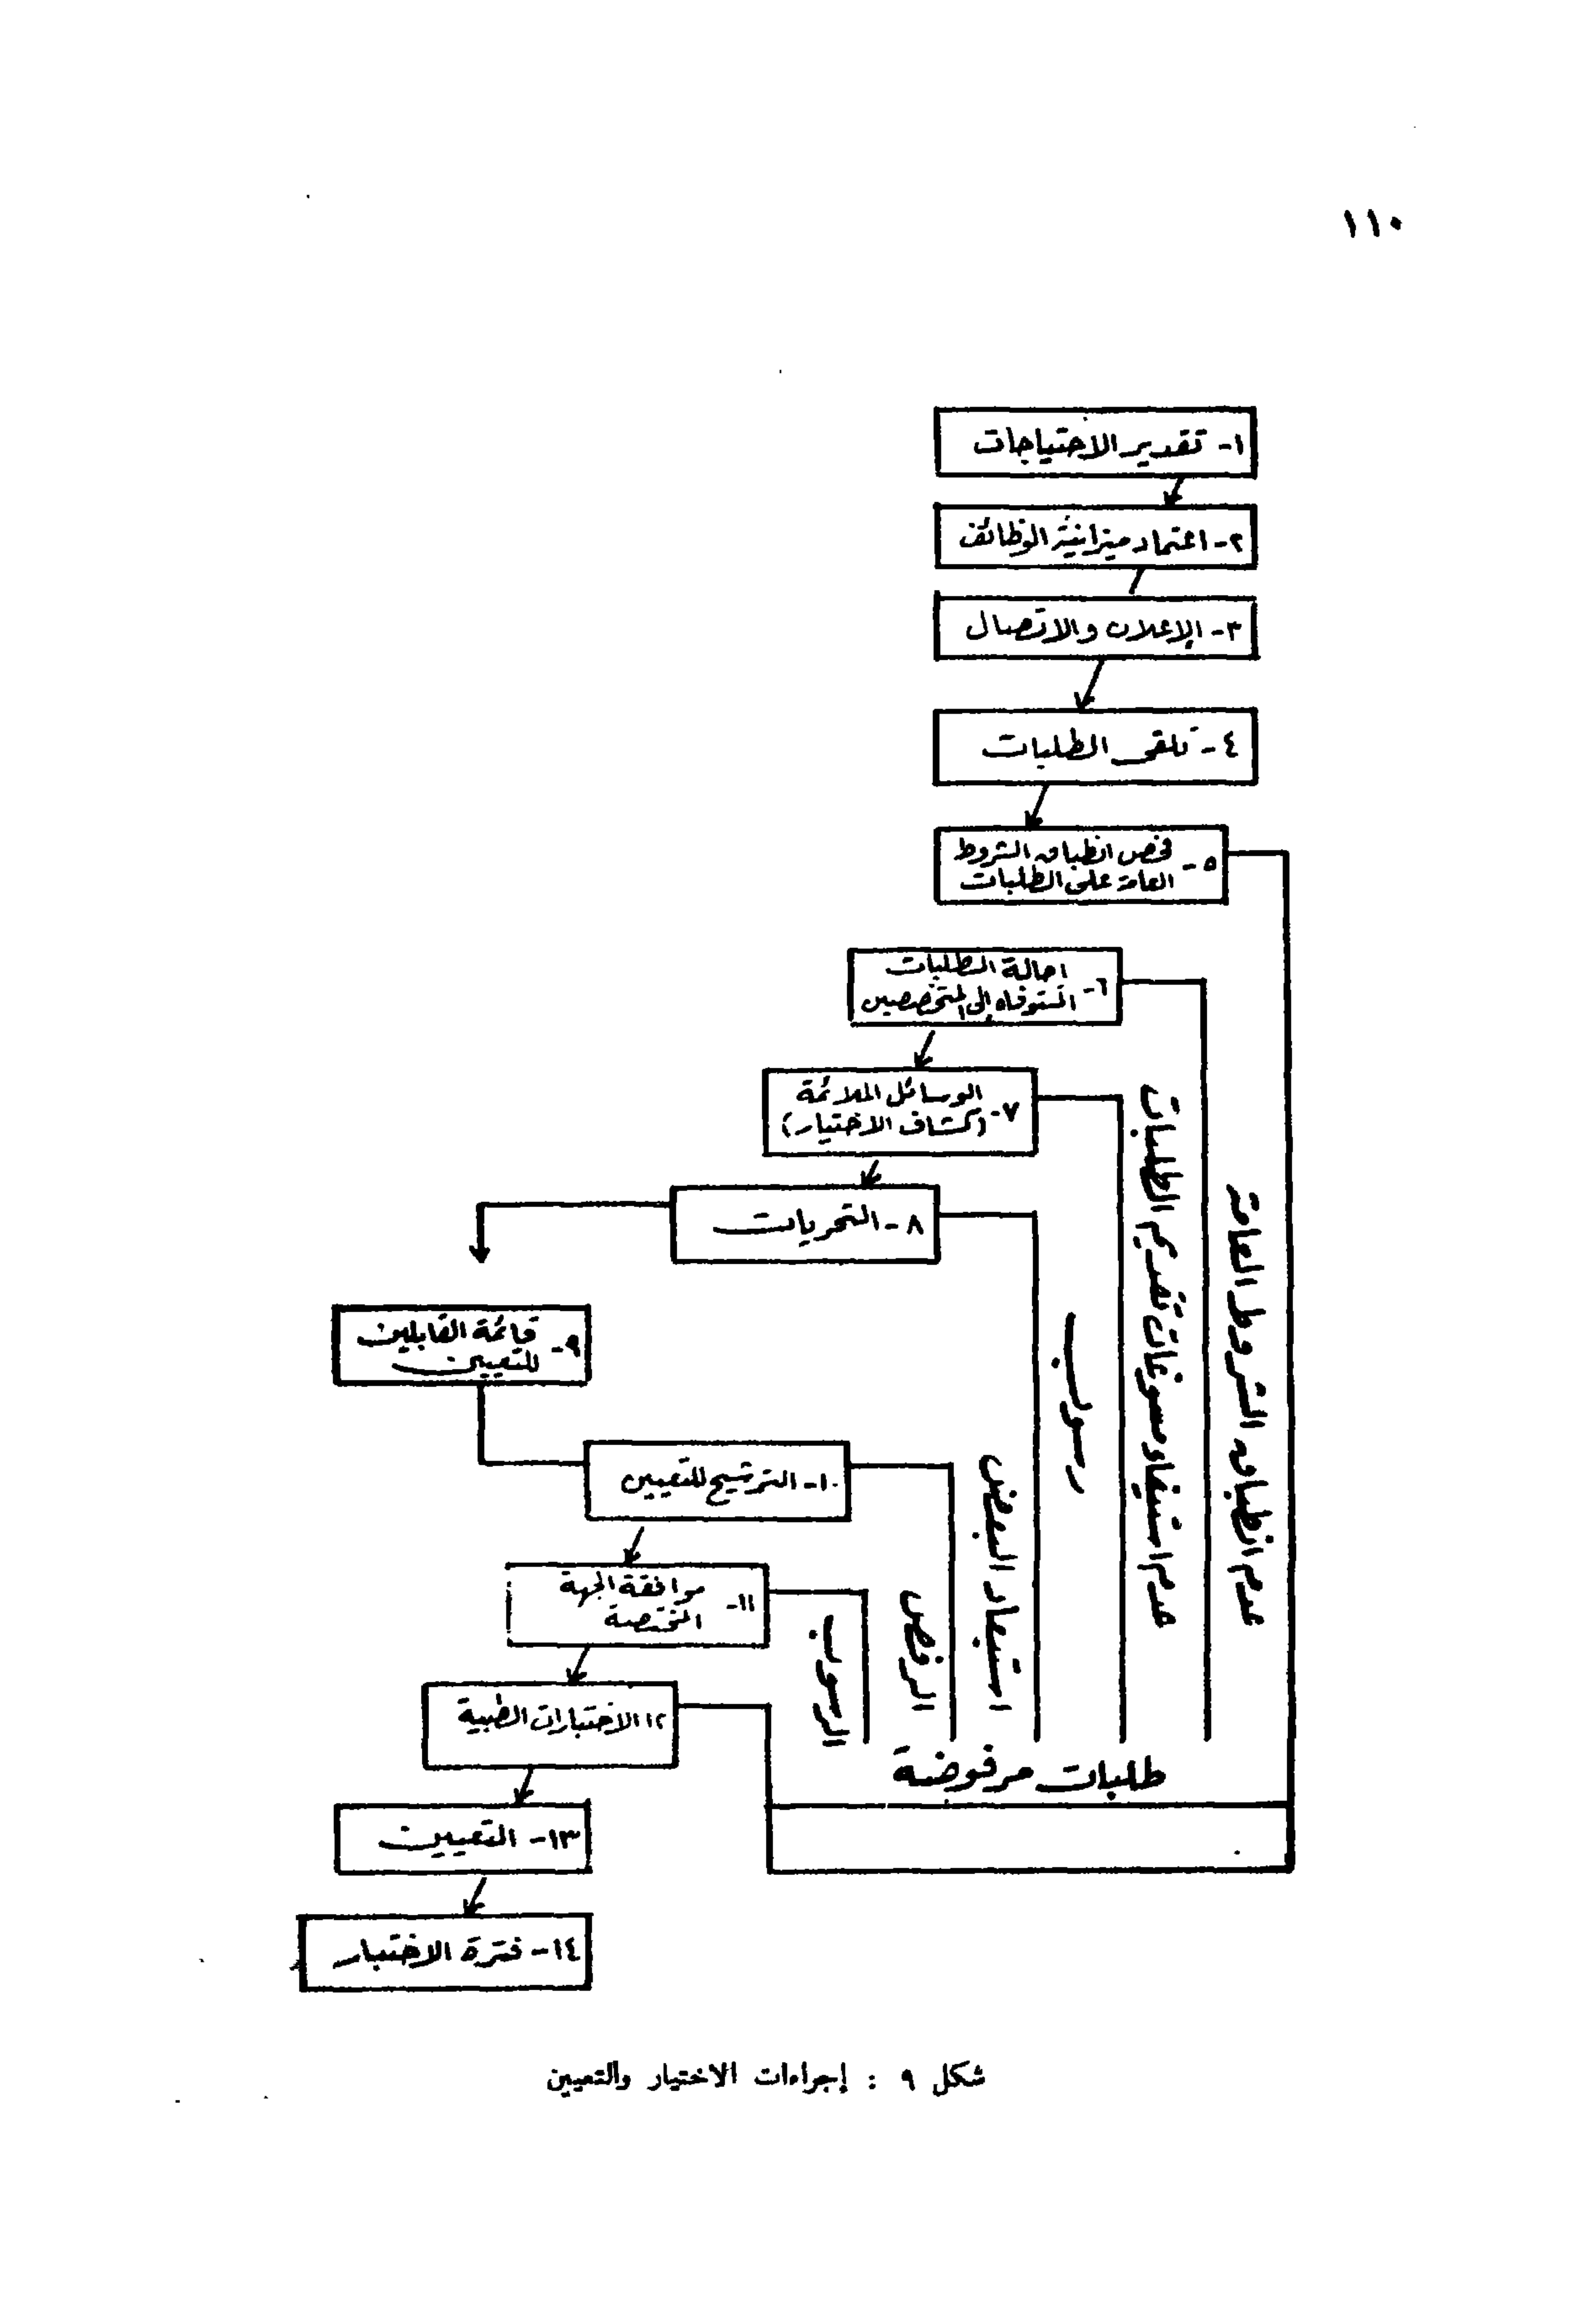 ١١٠
١- تقدير الاختياجات
٢- اعتماد ميزانية الوظائف
٣- الإعلان والاتصال
٤- تلقى الطلبات
٥- فحص انطباق الشروط
العامة على الطلبات
٦- احالة الطلبات
المستوفاه إلى المتخصصين
٧- الوسائل الملائمة
(كشاف الاختيار)
٨- التحريات
٩- قائمة القابلين
للتعيين
١٠- الترشيح للتعيين
١١- موافقة الجهة
المختصة
١٢ الاختبارات الطبية
١٣- التعيين
١٤- فترة الاختبار
عدم انطباق الشروط العامة
عدم استيفاء مسوغات تقديم الطلبات
رسوب
استبعاد البعض
الرفض
الرسوب
طلبات مرفوضة
شكل ٩ : إجراءات الاختيار والتعيين